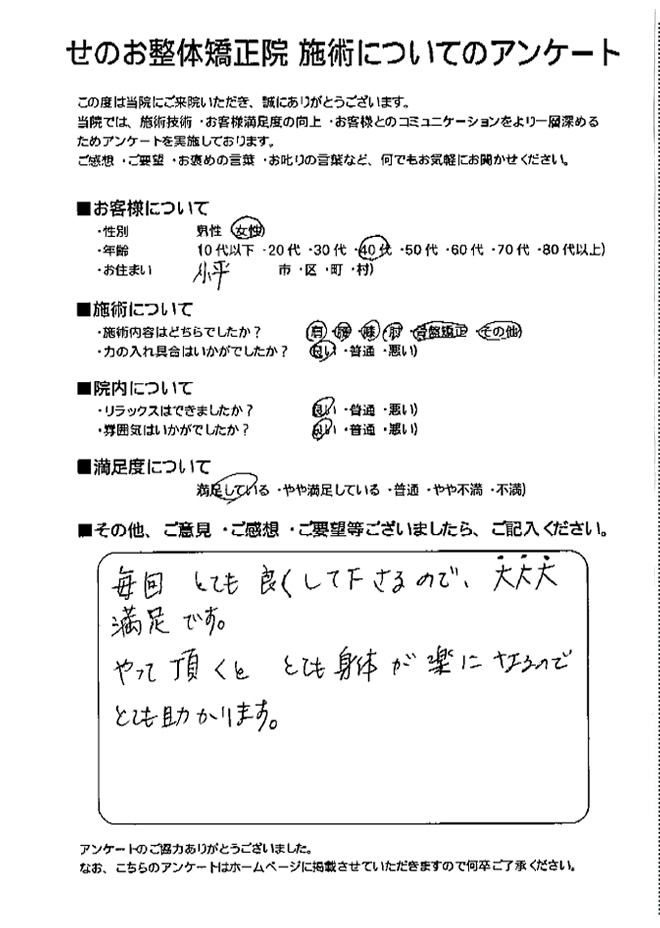 せのお整体矯正院 施術についてのアンケート
この度は当院にご来院いただき、誠にありがとうございます。
当院では、施術技術・お客様満足度の向上・お客様とのコミュニケーションをより一層深める
ためアンケートを実施しております。
ご感想・ご要望・お褒めの言葉・お叱りの言葉など、何でもお気軽にお聞かせください。
■お客様について
・性別 男性 女性)
・年齢 10代以下・20代・30代・40代・50代・60代・70代・80代以上)
・お住まい 小平 市・区・町・村)
■施術について
・施術内容はどちらでしたか? (肩・腰・膝・肘・骨盤矯正・その他)
・力の入れ具合はいかがでしたか? 良い・普通・悪い)
■院内について
・リラックスはできましたか? 良い・普通・悪い)
・雰囲気はいかがでしたか? 良い・普通・悪い)
■満足度について
満足している・やや満足している・普通・やや不満・不満)
■その他、ご意見・ご感想・ご要望等ございましたら、ご記入ください。
毎回 とても 良くして下さるので、大大大
満足です。
やって頂くと とても身体が楽になるので
とても助かります。
アンケートのご協力ありがとうございました。
なお、こちらのアンケートはホームページに掲載させていただきますので何卒ご了承ください。